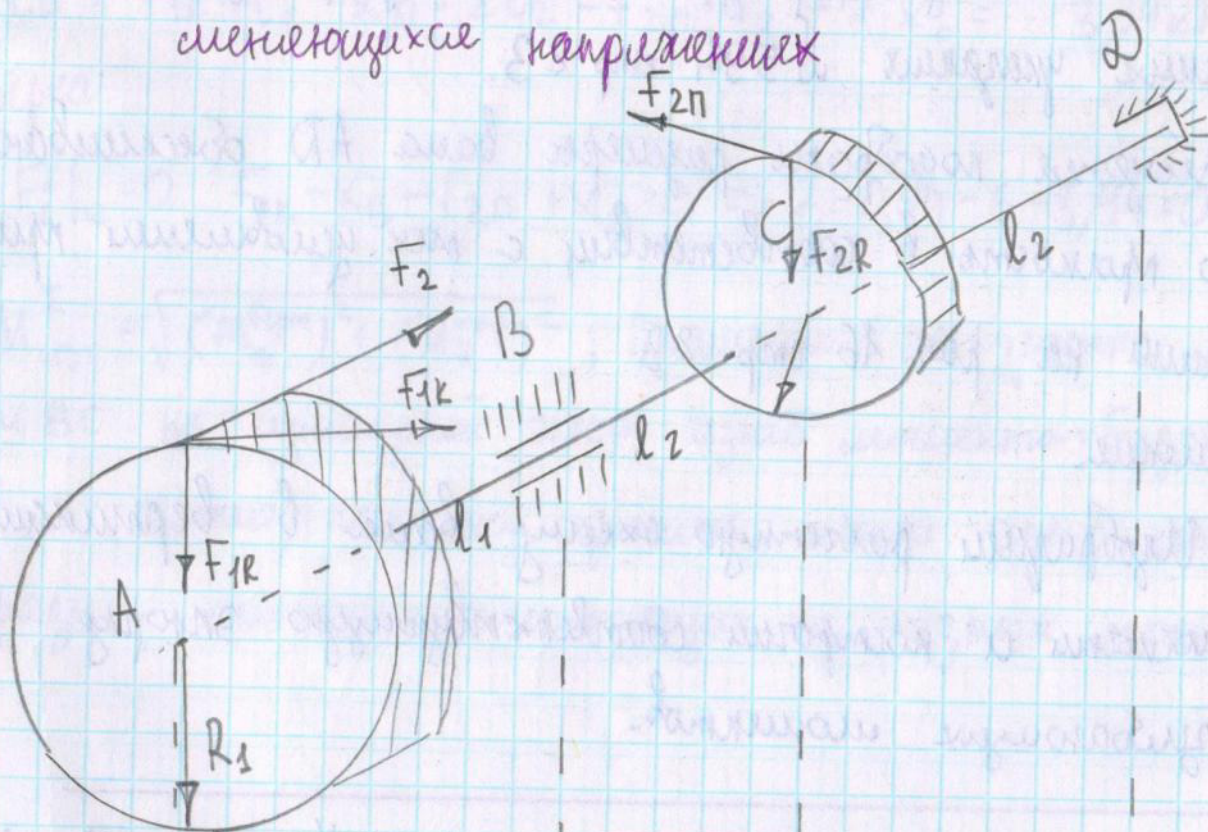 сменяющихся напряжениях
D
F2П
C
F2R
l2
F2
B
F1K
l2
l1
F1R
A
R1